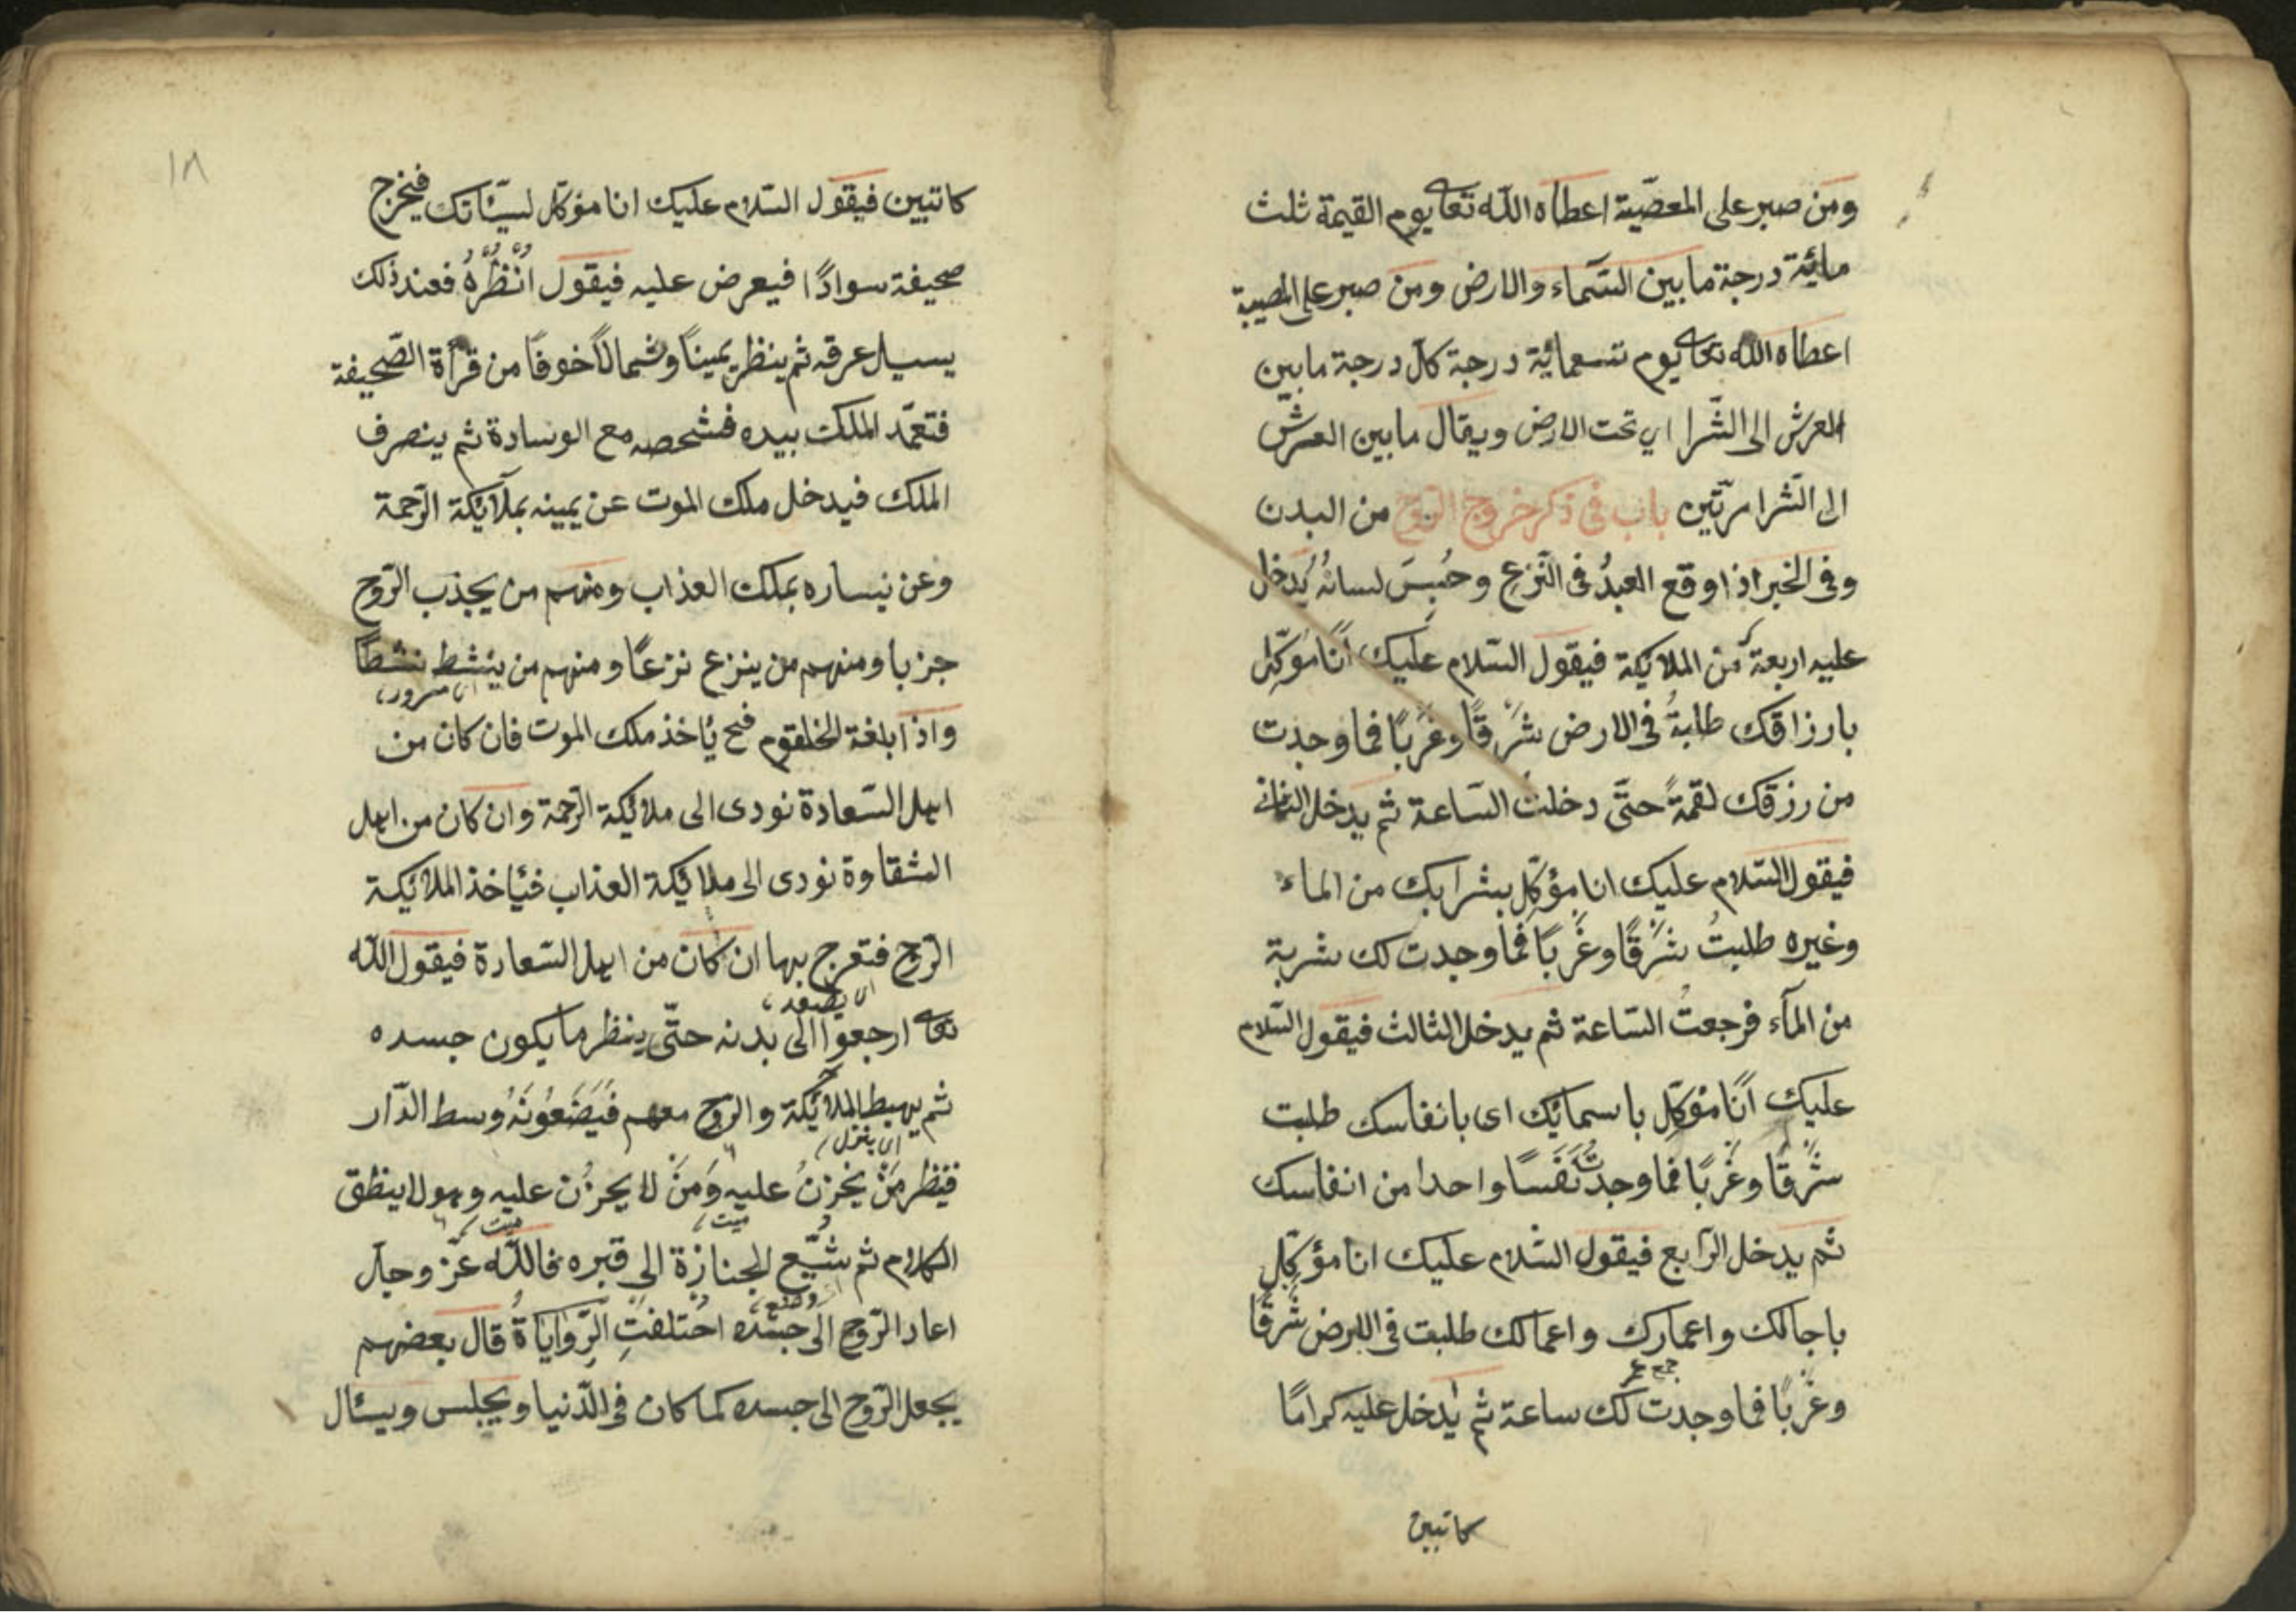 ومن صبر على المعصيّة اعطاه اللّه تعا يوم القيمة ثلث
مائية درجة ما بين السّماء والارض ومن صبر على المصيبة
اعطاه الله تعا يوم تسعمائية درجة كلّ درجة ما بين
العرش الى الثّرا اي تحت الارض ويقال ما بين العرش
الى الثّرا مرّتين باب فى ذكر خروج الرّوح من البدن
وفى الخبر اذا وقع العبدُ فى النّزعِ وحُبِسَ لسانُهُ يُدخل
عليه اربعة من الملايكة فيقول السّلام عليك انا موكّل
بارزاقك طلبةُ فى الارض شَرْقًا وغَرْبًا فما وجدت
من رزقك لقمةً حتّى دخلت السّاعة ثم يدخل الثانى
فيقول السّلام عليك انا مؤكّل بشرابك من الماء
وغيره طلبتُ شَرْقًا وغَرْبًا فما وجدت لك شربة
من المآء فرجعتُ السّاعة ثم يدخل الثالث فيقول السّلام
عليك انا مؤكّل باسمايك اى بانفاسك طلبت
شَرْقًا وغَرْبًا فما وجدتُ نَفَسًا واحدا من انفاسك
ثم يدخل الرّابع فيقول السّلام عليك انا مؤكّل
باجالك واعمارك واعمالك طلبت فى الارض شَرْقًا
جمع عمر
وغَرْبًا فما وجدت لك ساعة ثم يُدخل عليه كرامًا
كاتبين
١٨
كاتبين فيقول السّلام عليك انا مؤكّل لسيّئاتك فيخرج
صحيفة سوادًا فيعرض عليه فيقول انْظُرْهُ فعند ذلك
يسيل عرقه ثم ينظر يمينًا وشمالًا خوفًا من قرأة الصّحيفة
فتعمّد الملك بيده فشحصه مع الوسادة ثم ينصرف
الملك فيدخل ملك الموت عن يمينه بملآيكة الرّحمة
وعن نيساره بملك العذاب ومنهم من يجذب الرّوح
جزبا ومنهم من ينزع نزعًا ومنهم من ينشط نشطًا
اى سرور
واذا بلغة الخلقوم فح ئاخذ ملك الموت فان كان من
اهل السّعادة نودى الى ملائيكة الرّحمة وان كان من اهل
الشقاوة نودى الى ملائيكة العذاب فئاخذ الملائيكة
الرّوح فتعرج بها ان كان من اهل السّعادة فيقول اللّه
اى يصعد
تعا ارجعوا الى بدنه حتّى ينظر ما يكون جسده
ثم يهبط الملائيكة والرّوح معهم فَيَضَعُونَهُ وسط الدّار
اى ينزل
فينظر مَنْ يحزنُ عليه وَمَنْ لا يحزُن عليه وهو لا ينطق
ميت ميت
الكلام ثم شيّع الجنازة الى قبره فاللّه عزّ وجلّ
وضع
اعاد الرّوح الى جسده اختلفتِ الرّواياةُ قال بعضهم
يجعل الرّوح الى جسده كما كان فى الدّنيا ويجلس ويسئال